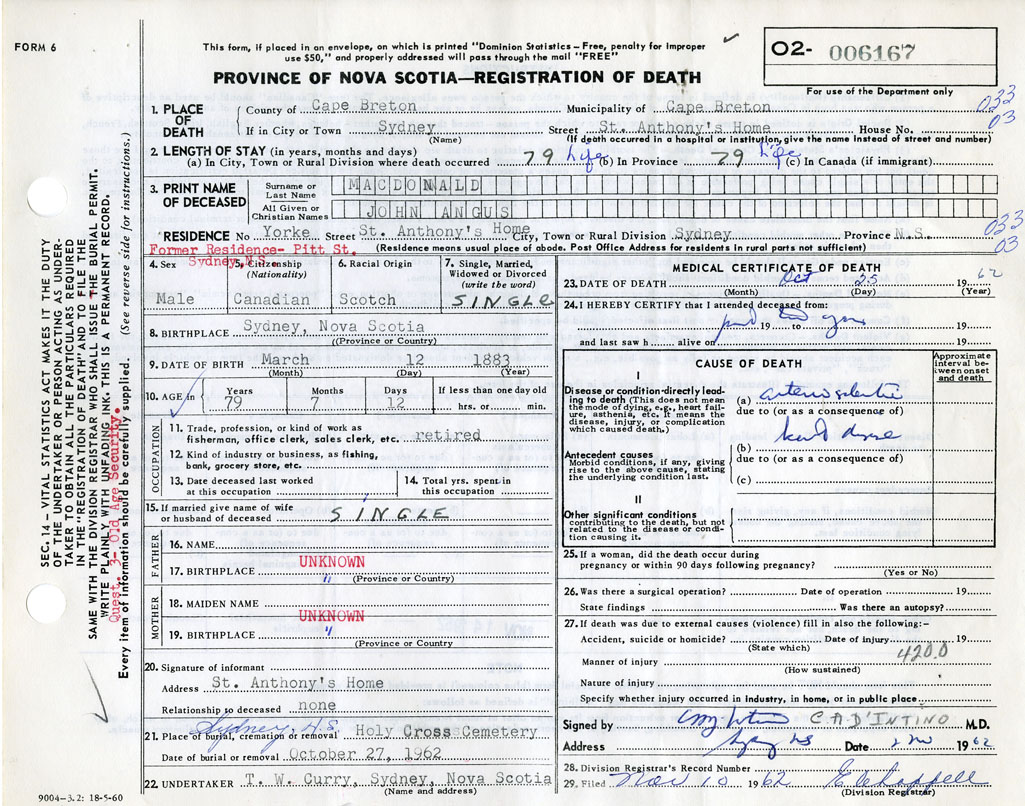 FORM 6
This form, if placed in an envelope, on which is printed "Dominion Statistics – Free, penalty for improper
use $50," and properly addressed will pass through the mail "FREE"
PROVINCE OF NOVA SCOTIA—REGISTRATION OF DEATH
02- 006167
For use of the Department only
033
03
1. PLACE OF DEATH
County of Cape Breton Municipality of Cape Breton
If in City or Town Sydney Street St. Anthony's Home House No.
(Name) (If death occurred in a hospital or institution, give the name instead of street and number)
2. LENGTH OF STAY (in years, months and days)
(a) In City, Town or Rural Division where death occurred 79 Life (b) In Province 79 Life (c) In Canada (if immigrant)
3. PRINT NAME OF DECEASED
Surname or Last Name MACDONALD
All Given or Christian Names JOHN ANGUS
RESIDENCE No Yorke Street St. Anthony's Home City, Town or Rural Division Sydney Province N.S.
033
03
Former Residence- Pitt St.
Sydney, N.S.
(Residence means usual place of abode. Post Office Address for residents in rural parts not sufficient)
4. Sex
Male
5. Citizenship
(Nationality)
Canadian
6. Racial Origin
Scotch
7. Single, Married,
Widowed or Divorced
(write the word)
SINGLE
8. BIRTHPLACE Sydney, Nova Scotia
((Province or Country)
9. DATE OF BIRTH March 12 1883
(Month) (Day) (Year)
10. AGE in
Years Months Days If less than one day old
79 7 12 hrs. or min.
OCCUPATION
11. Trade, profession, or kind of work as
fisherman, office clerk, sales clerk, etc. retired
12. Kind of industry or business, as fishing,
bank, grocery store, etc.
13. Date deceased last worked
at this occupation
14. Total yrs. spent in
this occupation
15. If married give name of wife
or husband of deceased SINGLE
FATHER
16. NAME
UNKNOWN
17. BIRTHPLACE "
(Province or Country)
MOTHER
18. MAIDEN NAME
UNKNOWN
19. BIRTHPLACE "
(Province or Country)
20. Signature of informant
Address St. Anthony's Home
Relationship to deceased none
Sydney, N.S.
21. Place of burial, cremation or removal Holy Cross Cemetery
Date of burial or removal October 27, 1962
22. UNDERTAKER T. W. Curry, Sydney, Nova Scotia
(Name and address)
9004-3.2: 18-5-60
MEDICAL CERTIFICATE OF DEATH
23. DATE OF DEATH Oct 25 1962
(Month) (Day) (Year)
24. I HEREBY CERTIFY that I attended deceased from:
19 to 19
and last saw h alive on 19
CAUSE OF DEATH
Approximate
interval between onset
and death
I
Disease or condition directly leading to death (This does not mean
the mode of dying, e.g., heart failure, asthenia, etc. It means the
disease, injury, or complication
which caused death.)
(a)
due to (or as a consequence of)
Antecedent causes
Morbid conditions, if any, giving
rise to the above cause, stating
the underlying condition last.
(b)
due to (or as a consequence of)
(c)
II
Other significant conditions
contributing to the death, but not
related to the disease or condition causing it.
25. If a woman, did the death occur during
pregnancy or within 90 days following pregnancy?
(Yes or No)
26. Was there a surgical operation? Date of operation 19
State findings Was there an autopsy?
27. If death was due to external causes (violence) fill in also the following:-
Accident, suicide or homicide? Date of injury 19
(State which)
420.0
Manner of injury
(How sustained)
Nature of injury
Specify whether injury occurred in industry, in home, or in public place
Signed by C.A. D'INTINO M.D.
Address Date 1962
28. Division Registrar's Record Number
29. Filed Nov 10 1962 E Chappell
(Division Registrar)
SEC. 14 – VITAL STATISTICS ACT MAKES IT THE DUTY
OF THE UNDERTAKER OR PERSON ACTING AS UNDERTAKER TO OBTAIN ALL THE PARTICULARS REQUIRED
IN THE "REGISTRATION OF DEATH" AND TO FILE THE
SAME WITH THE DIVISION REGISTRAR WHO SHALL ISSUE THE BURIAL PERMIT.
WRITE PLAINLY WITH UNFADING INK. THIS IS A PERMANENT RECORD.
Quest. 3- Old Age Security.
Every item of information should be carefully supplied. (See reverse side for instructions.)